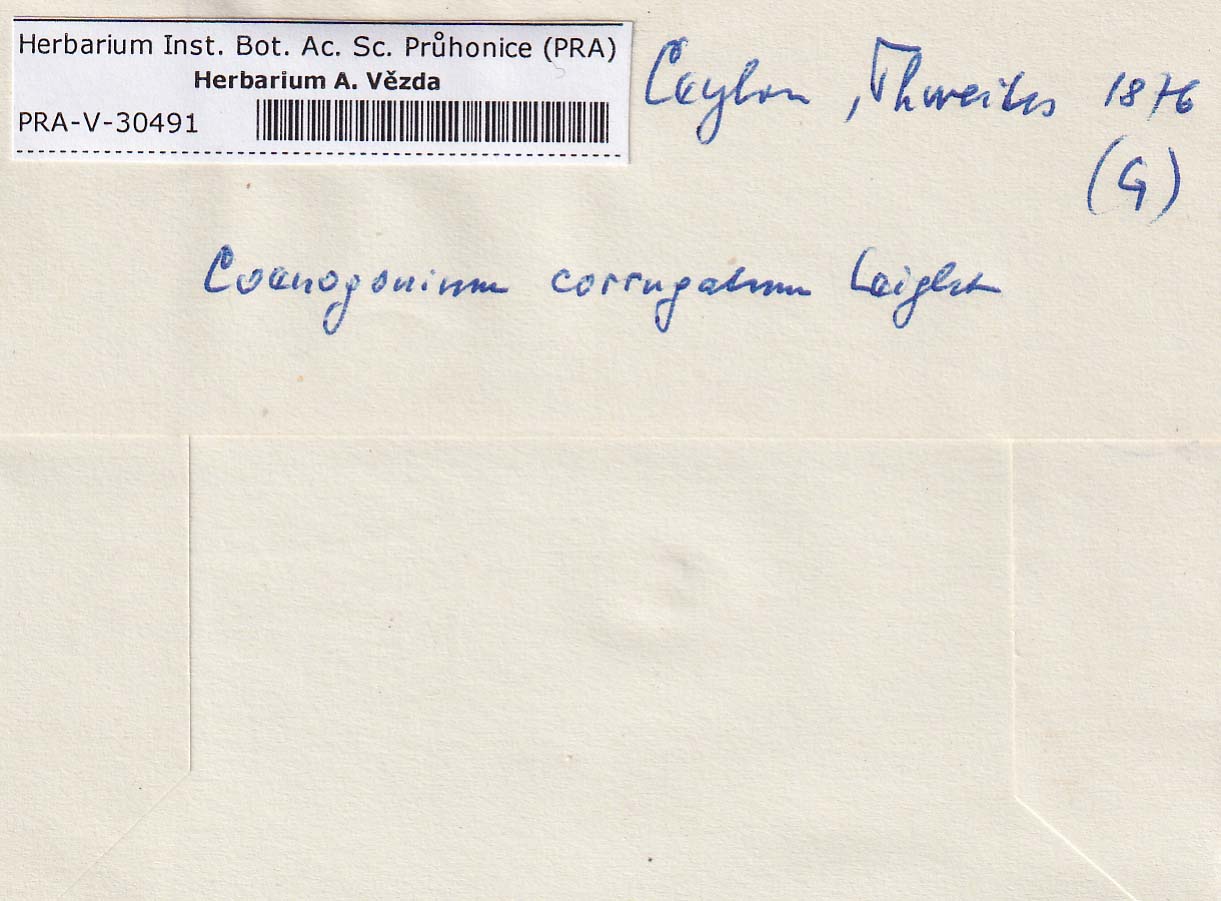 Herbarium Inst. Bot. Ac. Sc. Průhonice (PRA)
Herbarium A. Vězda
PRA-V-30491
Ceylon, Thweites 1876
(G)
Coenogonium corrugatum Leight